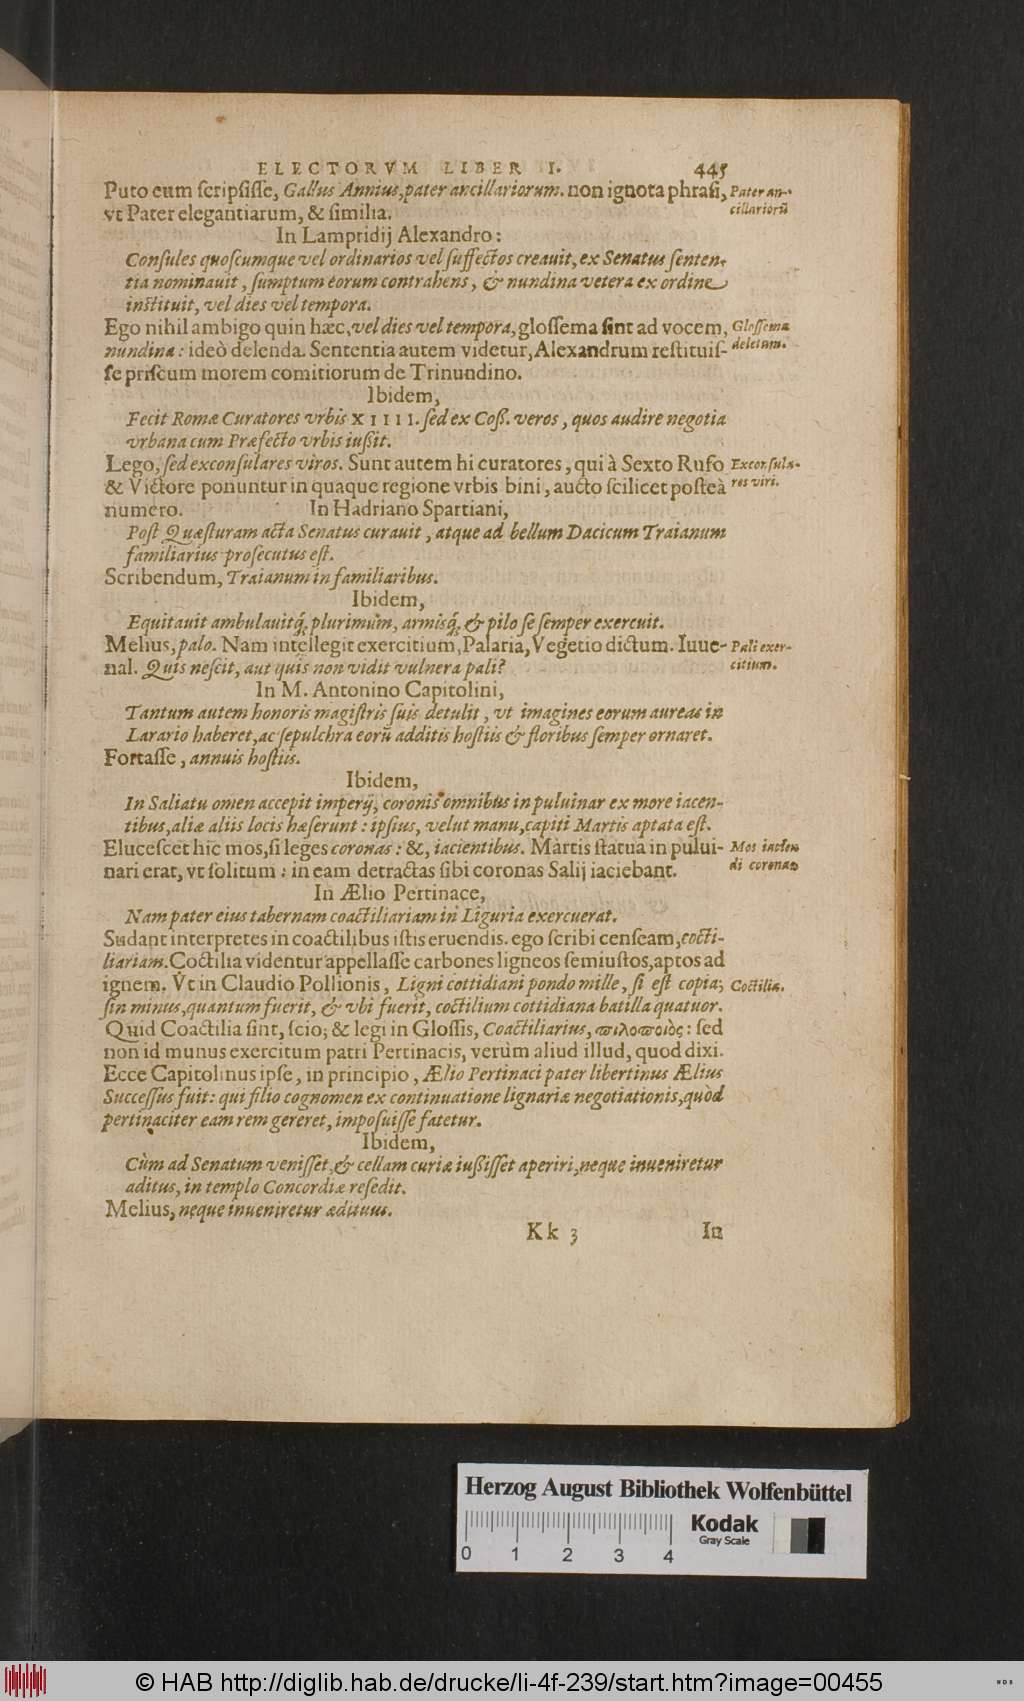 ELECTORVM LIBER I. 445
Puto eum ſcripſiſſe, Gallus Annius, pater ancillariorum. non ignota phraſi, Pater an-
vt Pater elegantiarum, & ſimilia. cillariorū
In Lampridij Alexandro:
Conſules quoſcumque vel ordinarios vel ſuffectos creauit, ex Senatus ſenten-
tia nominauit, ſumptum eorum contrahens, & nundina vetera ex ordine
inſtituit, vel dies vel tempora.
Ego nihil ambigo quin hæc, vel dies vel tempora, gloſſema ſint ad vocem, Gloſſema
nundina: ideò delenda. Sententia autem videtur, Alexandrum reſtituiſ- deletum.
ſe priſcum morem comitiorum de Trinundino.
Ibidem,
Fecit Romæ Curatores vrbis XIIII. ſed ex Coſſ. veros, quos audire negotia
vrbana cum Præfecto vrbis iuſsit.
Lego, ſed exconſulares viros. Sunt autem hi curatores, qui à Sexto Rufo Exconſula-
& Victore ponuntur in quaque regione vrbis bini, aucto ſcilicet poſteà res viri.
numero. In Hadriano Spartiani,
Poſt Quæſturam acta Senatus curauit, atque ad bellum Dacicum Traianum
familiarius proſecutus eſt.
Scribendum, Traianum in familiaribus.
Ibidem,
Equitauit ambulauitq́; plurimùm, armisq́; & pilo ſe ſemper exercuit.
Melius, palo. Nam intellegit exercitium, Palaria, Vegetio dictum. Iuue- Pali exer-
nal. Quis neſcit, aut quis non vidit vulnera pali? citium.
In M. Antonino Capitolini,
Tantum autem honoris magiſtris ſuis detulit, vt imagines eorum aureas in
Larario haberet, ac ſepulchra eorū additis hoſtiis & floribus ſemper ornaret.
Fortaſſe, annuis hoſtiis.
Ibidem,
In Saliatu omen accepit imperij, coronis omnibus in puluinar ex more iacen-
tibus, aliæ aliis locis hæſerunt: ipſius, velut manu, capiti Martis aptata eſt.
Eluceſcet hic mos, ſi leges coronas: &, iacientibus. Martis ſtatua in pului- Mos iacien
nari erat, vt ſolitum: in eam detractas ſibi coronas Salij iaciebant. di coronas
In Ælio Pertinace,
Nam pater eius tabernam coactiliariam in Liguria exercuerat.
Sudant interpretes in coactilibus iſtis eruendis. ego ſcribi cenſeam, cocti-
liariam. Coctilia videntur appellaſſe carbones ligneos ſemiuſtos, aptos ad
ignem. Vt in Claudio Pollionis, Ligni cottidiani pondo mille, ſi eſt copia; Coctilia.
ſin minus, quantum fuerit, & vbi fuerit, coctilium cottidiana batilla quatuor.
Quid Coactilia ſint, ſcio; & legi in Gloſſis, Coactiliarius, πιλοποιὸς: ſed
non id munus exercitum patri Pertinacis, verùm aliud illud, quod dixi.
Ecce Capitolinus ipſe, in principio, Ælio Pertinaci pater libertinus Ælius
Succeſſus fuit: qui filio cognomen ex continuatione lignariæ negotiationis, quòd
pertinaciter eam rem gereret, impoſuiſſe fatetur.
Ibidem,
Cùm ad Senatum veniſſet, & cellam curiæ iuſsiſſet aperiri, neque inueniretur
aditus, in templo Concordiæ reſedit.
Melius, neque inueniretur ædituus.
Kk 3 In
Herzog August Bibliothek Wolfenbüttel
Kodak
Gray Scale
0 1 2 3 4
© HAB http://diglib.hab.de/drucke/li-4f-239/start.htm?image=00455